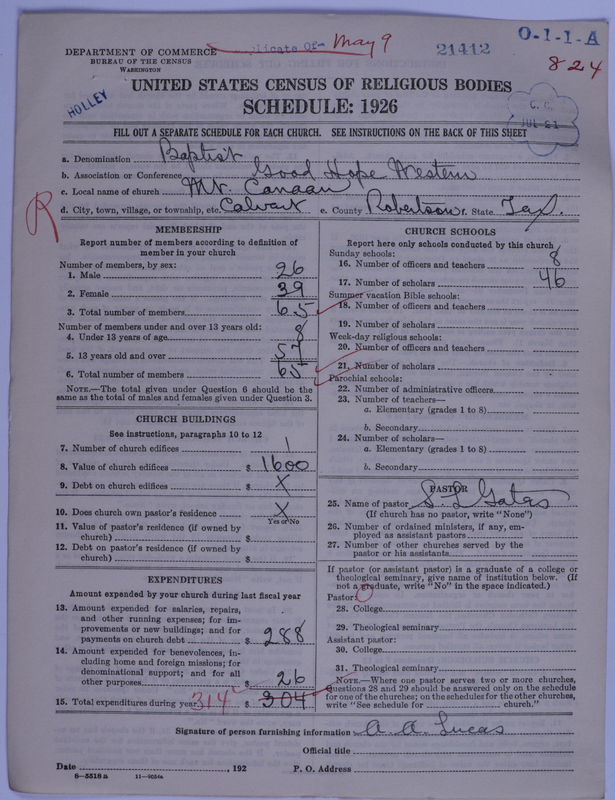 May 9
21412
O-1-1-A
824
DEPARTMENT OF COMMERCE
BUREAU OF THE CENSUS
WASHINGTON
HOLLEY
JUL 21
UNITED STATES CENSUS OF RELIGIOUS BODIES
SCHEDULE: 1926
FILL OUT A SEPARATE SCHEDULE FOR EACH CHURCH. SEE INSTRUCTIONS ON THE BACK OF THIS SHEET
a. Denomination Baptist
b. Association or Conference Good Hope Western
c. Local name of church Mt. Canaan
R
d. City, town, village, or township, etc. Calvert e. County Robertson f. State Tex.
MEMBERSHIP
Report number of members according to definition of
member in your church
Number of members, by sex:
1. Male 26
2. Female 39
3. Total number of members 65
Number of members under and over 13 years old:
4. Under 13 years of age 8
5. 13 years old and over 57
6. Total number of members 65
NOTE.—The total given under Question 6 should be the
same as the total of males and females given under Question 3.
CHURCH BUILDINGS
See instructions, paragraphs 10 to 12
7. Number of church edifices 1
8. Value of church edifices $ 1600
9. Debt on church edifices $ X
10. Does church own pastor's residence X
Yes or No
11. Value of pastor's residence (if owned by
church) $
12. Debt on pastor's residence (if owned by
church) $
EXPENDITURES
Amount expended by your church during last fiscal year
13. Amount expended for salaries, repairs,
and other running expenses; for im-
provements or new buildings; and for
payments on church debt $ 288
14. Amount expended for benevolences, in-
cluding home and foreign missions; for
denominational support; and for all
other purposes $ 26
15. Total expenditures during year 314 $ 304
CHURCH SCHOOLS
Report here only schools conducted by this church
Sunday schools:
16. Number of officers and teachers 8
17. Number of scholars 46
Summer vacation Bible schools:
18. Number of officers and teachers
19. Number of scholars
Week-day religious schools:
20. Number of officers and teachers
21. Number of scholars
Parochial schools:
22. Number of administrative officers
23. Number of teachers—
a. Elementary (grades 1 to 8)
b. Secondary
24. Number of scholars—
a. Elementary (grades 1 to 8)
b. Secondary
PASTOR
25. Name of pastor S. L. Gates
(If church has no pastor, write "None")
26. Number of ordained ministers, if any, em-
ployed as assistant pastors
27. Number of other churches served by the
pastor or his assistants
If pastor (or assistant pastor) is a graduate of a college or
theological seminary, give name of institution below. (If
not a graduate, write "No" in the space indicated.)
Pastor:
28. College
29. Theological seminary
Assistant pastor:
30. College
31. Theological seminary
NOTE.—Where one pastor serves two or more churches,
Questions 28 and 29 should be answered only on the schedule
for one of the churches; on the schedules for the other churches,
write "See schedule for church."
Signature of person furnishing information A. A. Lucas
Official title
Date , 192 P. O. Address
8—5518 a 11—9034a